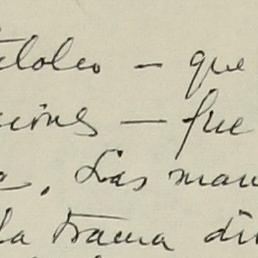 — que
ciones — fue
a. Las man
la trama di